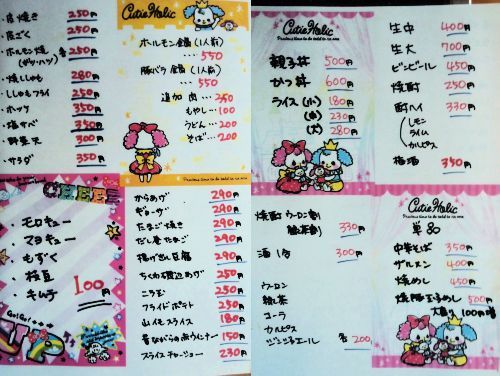 250円
皮ごく 250円
ホルモン焼 各250円
(ガツ・ハツ)
焼ししゃも 280円
ししゃもフライ 250円
ホッケ 350円
塩サバ 350円
野菜天 300円
サラダ 350円
Cutie Holic
ホールモン全歯(1人前)
550
豚バラ 全歯(1人前)
550
追加 肉… 250
もやし… 100
うどん… 200
そば… 200
CHEER
・モロキュー
・マヨキュー
・もずく
・枝豆
・キムチ
100円
Go!Go!
UP
からあげ 290円
ギョーザ 290円
たまご焼き 290円
だし巻たまご 290円
揚げだし豆腐 290円
ちくわ磯辺あげ 250円
ニラ玉 250円
フライドポテト 250円
山イモスライス 180円
昔ながらの赤ウインナー 150円
スライスチャーシュー 230円
Cutie Holic
Precious time to be told to no one
親子丼 500円
かつ丼 600円
ライス(小) 180円
(中) 230円
(大) 280円
生中 400円
生大 700円
ビンビール 450円
焼酎 250円
酎ハイ 330円
(レモン
ライム
カルピス
梅酒 350円
焼酎 ウーロン割
緑茶割 330円
酒 1合 300円
ウーロン
緑茶
コーラ
カルピス
ジンジャエール 各200
Cutie Holic
Precious time to be told to no one
単品
中華そば 350円
ザルメン 400円
焼めし 450円
焼豚玉子めし 500円
大盛り 100円増